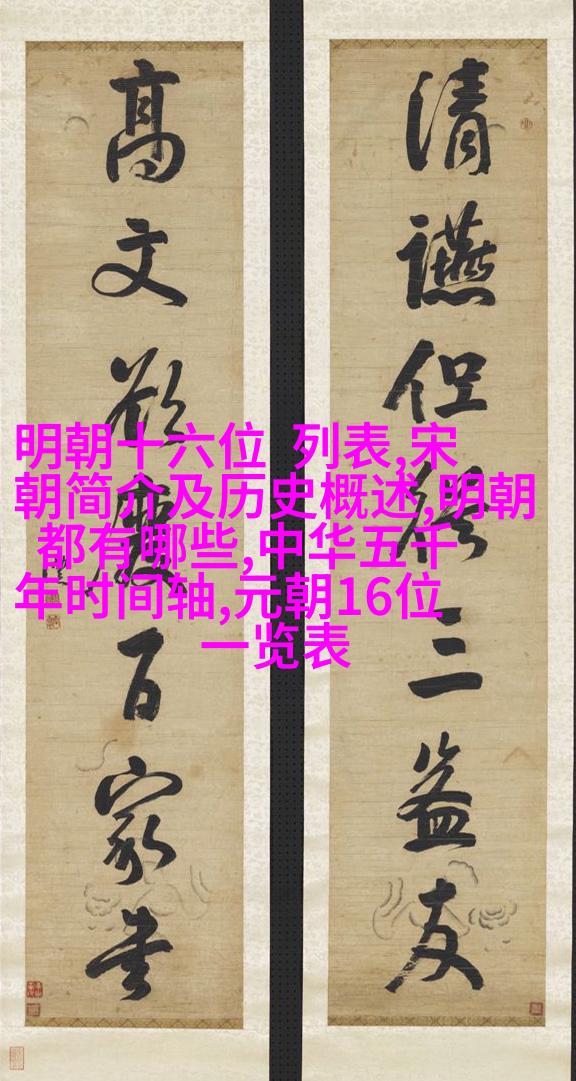 清讌但三益友
高文欲百家書
明朝十六位 列表,宋
朝简介及历史概述,明朝
都有哪些,中华五千
年时间轴,元朝16位
一览表